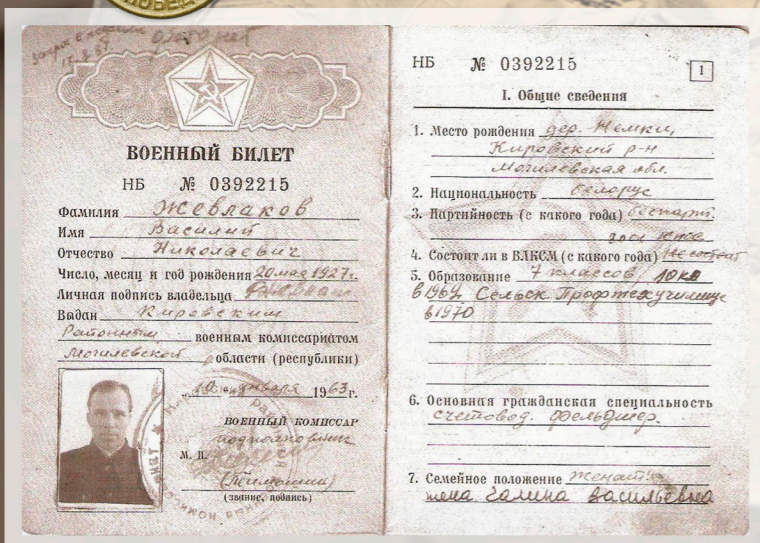 ПОБЕД
ВОЕННЫЙ БИЛЕТ
НБ № 0392215
Фамилия Жевлаков
Имя Василий
Отчество Николаевич
Число, месяц и год рождения 20 мая 1927 г.
Личная подпись владельца
Выдан Кировским
Районным военным комиссариатом
Могилевской области (республики)
10 января 1963 г.
ВОЕННЫЙ КОМИССАР
подполковник
М. П.
(звание, подпись)
НБ № 0392215
1
I. Общие сведения
1. Место рождения дер. Немки,
Кировский р-н
Могилевская обл.
2. Национальность белорус
3. Партийность (с какого года) беспарт.
4. Состоит ли в ВЛКСМ (с какого года) Не состоит
5. Образование 7 классов, 10 кл
в 1969. Сельск. Профтехучилище
в 1970
6. Основная гражданская специальность
счетовод. фельдшер.
7. Семейное положение женат:
жена Галина Васильевна